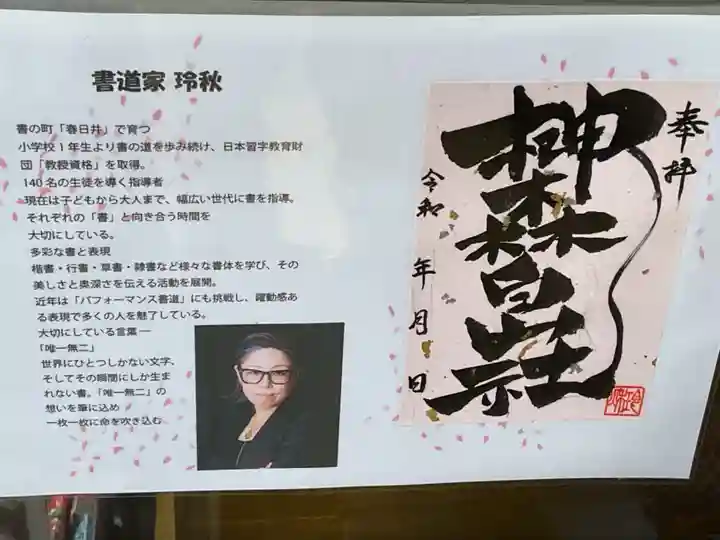 書道家 玲秋
書の町「春日井」で育つ
小学校1年生より書の道を歩み続け、日本習字教育財
団「教授資格」を取得。
140名の生徒を導く指導者
現在は子どもから大人まで、幅広い世代に書を指導。
それぞれの「書」と向き合う時間を
大切にしている。
多彩な書と表現
楷書・行書・草書・隷書など様々な書体を学び、その
美しさと奥深さを伝える活動を展開。
近年は「パフォーマンス書道」にも挑戦し、躍動感あ
る表現で多くの人を魅了している。
大切にしている言葉―
「唯一無二」
世界にひとつしかない文字、
そしてその瞬間にしか生ま
れない書。「唯一無二」の
想いを筆に込め
一枚一枚に命を吹き込む
奉拝
令和 年 月 日